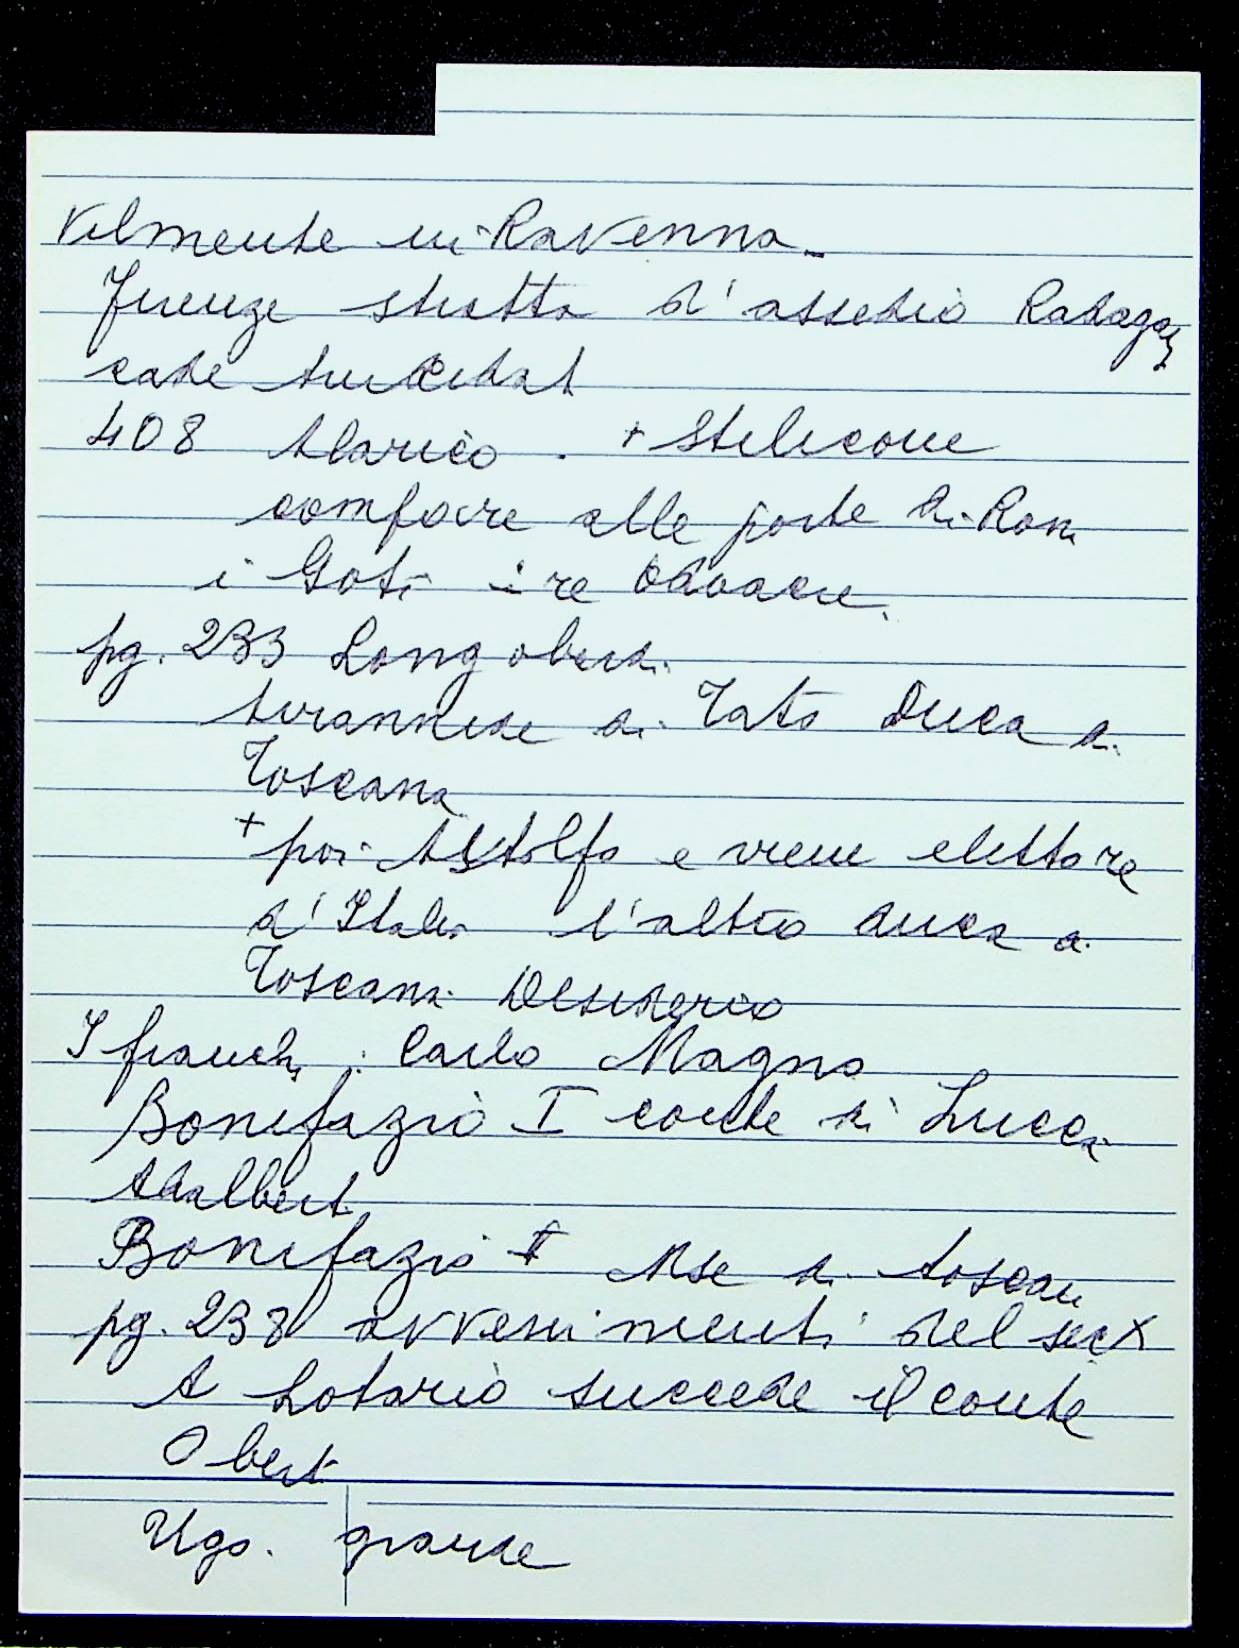 vilmente in Ravenna
Firenze stretta d'assedio Radaga
cade trucidat
408 Alarico . + Stilicone
compare alle porte di Rom
i Goti : re Odoacre.
pg. 233 Longobardi
tirannide di Tato Duca di
Toscana
+ poi Astolfo e viene eletto re
d'Italia l'altro duca di
Toscana Desiderio
I franchi : Carlo Magno
Bonifazio I conte di Lucca
Adalbert
Bonifazio II Mse di Toscan
pg. 238 avvenimenti del sec X
A Lotario succede il conte
Obert
Ugo. grande